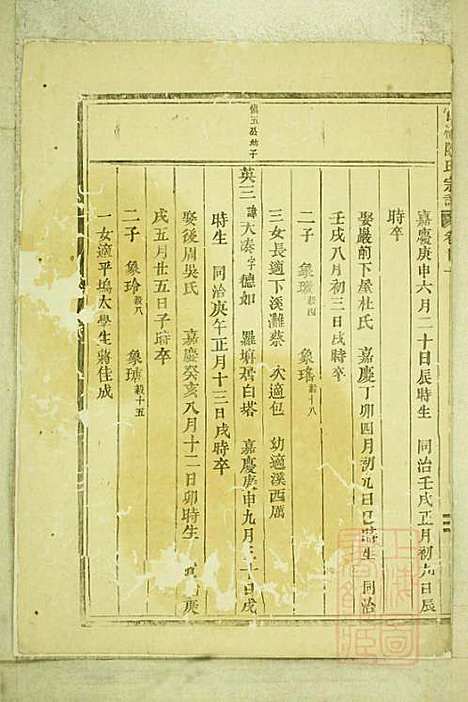 陳氏宗譜
嘉慶庚申六月二十日辰時生 同治壬戌正月初九日辰
時卒
娶嚴前下屋杜氏 嘉慶丁卯四月初九日巳時生 同治
壬戌八月初三日戌時卒
二子 象璥 穀四 象瑤 穀十八
三女長適下溪灘蔡 次適包 幼適溪西厲
慎五公幼子
英三 諱大湊字德如 羅塘居白塔 嘉慶庚申九月三十日戌
時生 同治庚午正月十三日戌時卒
娶後周吳氏 嘉慶癸亥八月十二日卯時生 庚
戌五月廿五日子時卒
二子 象玲 穀八 象璉 穀十五
一女適平塢太學生蔣佳成